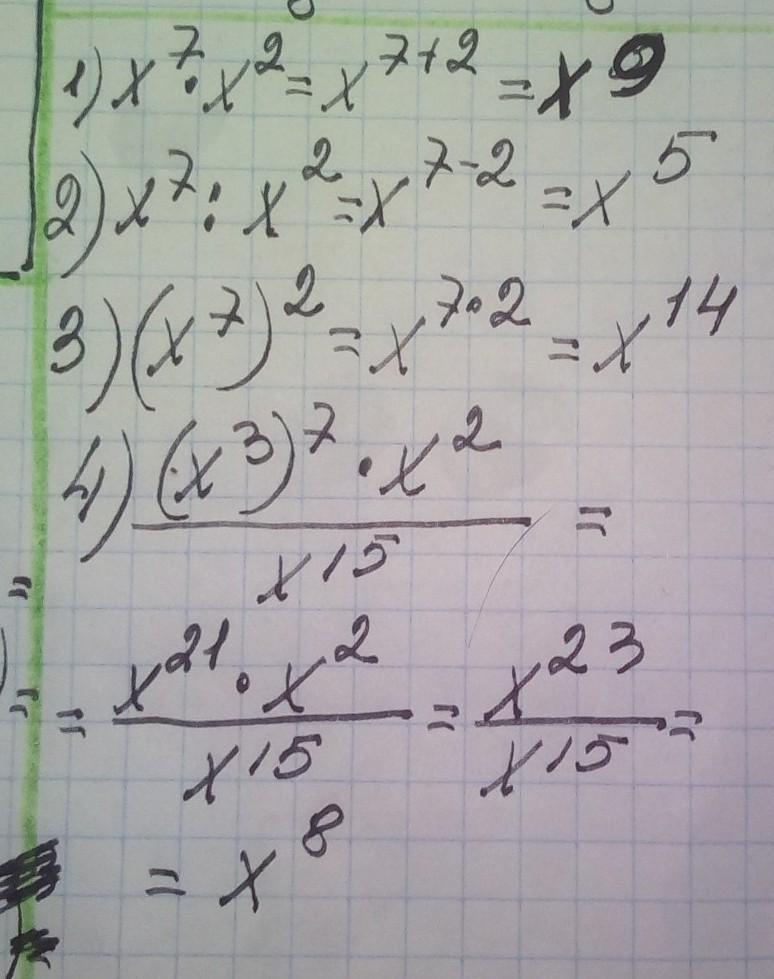 1) x⁷·x² = x⁷⁺² = x⁹
2) x⁷ : x² = x⁷⁻² = x⁵
3) (x⁷)² = x^{7·2} = x¹⁴
4) \frac{(x³)⁷ · x²}{x¹⁵} =
= \frac{x²¹ · x²}{x¹⁵} = \frac{x²³}{x¹⁵} =
= x⁸